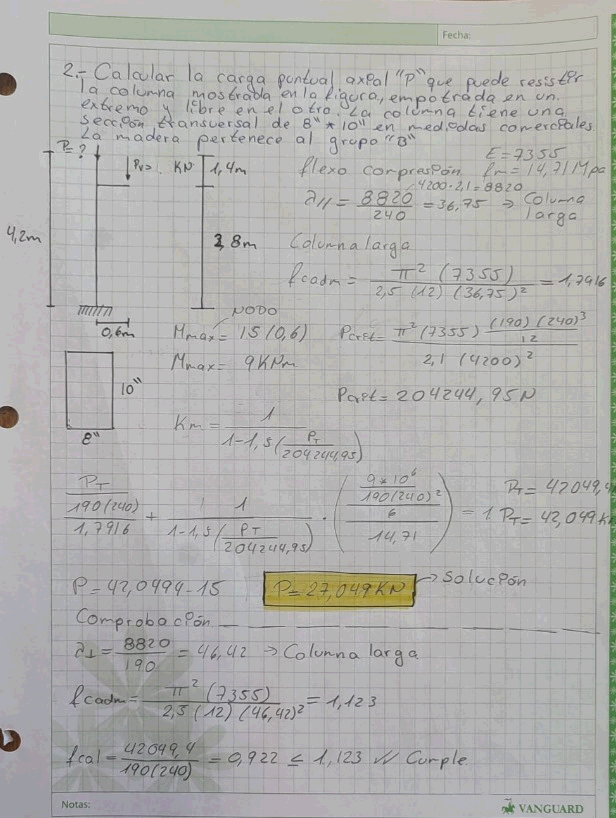 Fecha:
2.- Calcular la carga puntual axial "P" que puede resistir
la columna mostrada en la figura, empotrada en un
extremo y libre en el otro. La columna tiene una
sección transversal de 8" * 10" en medidas comerciales
La madera pertenece al grupo "B"
P=? KN 1,4m
flexo compresión
E = 7355
fm = 14,71 Mpa
4200·2,1 = 8820
λ// = 8820/240 = 36,75 → Columna larga
4,2m
2,8m
Columna larga
fcadm = π² (7355) / 2,5 (12) (36,75)² = 1,7916
NODO
0,6m
Mmax = 15 (0,6)
Pcrit = π² (7355) (190) (240)³/12 / 2,1 (4200)²
Mmax = 9KNm
10"
8"
Pcrit = 204244,95N
Km = 1 / 1-1,5 (PT / 204244,95)
PT/190(240) / 1,7916 + 1 / 1-1,5 (PT / 204244,95) · (9*10⁶ / 190(240)²/6 / 14,71) = 1
PT = 42049,4
PT = 42,049K
P = 42,0494-15
P = 27,049KN → Solución
Comprobación
λ⊥ = 8820/190 = 46,42 → Columna larga
fcadm = π² (7355) / 2,5 (12) (46,42)² = 1,123
fcal = 42049,4 / 190(240) = 0,922 ≤ 1,123 // Cumple
Notas:
VANGUARD